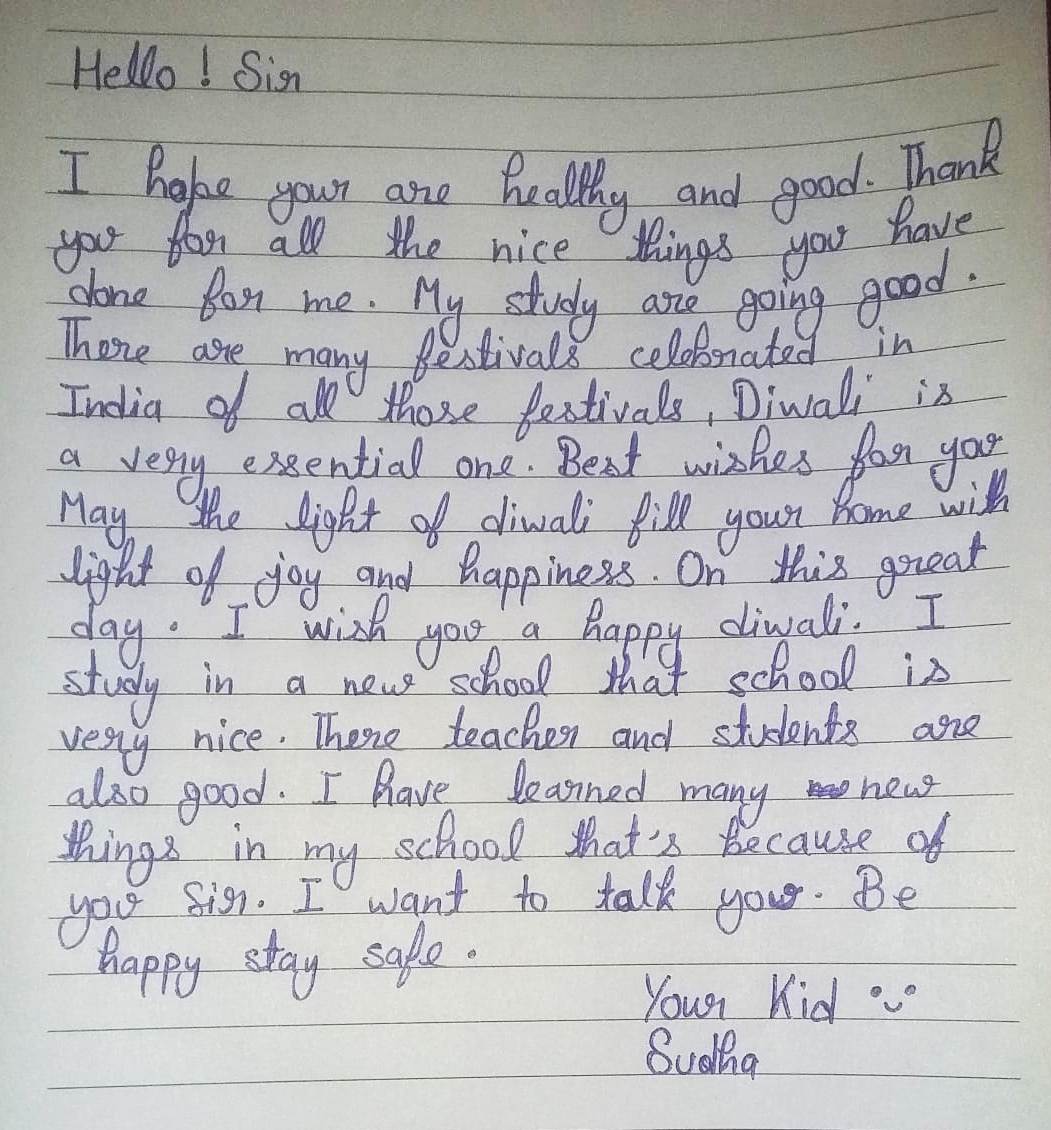 Hello ! Sir
I hope your are healthy and good. Thank
you for all the nice things you have
done for me. My study are going good.
There are many festivals celebrated in
India of all those festivals, Diwali is
a very essential one. Best wishes for you
May the light of diwali fill your home with
light of joy and happiness. On this great
day. I wish you a happy diwali. I
study in a new school that school is
very nice. There teacher and students are
also good. I have learned many new
things in my school that's because of
you Sir. I want to talk you. Be
happy stay safe.
Your Kid
Sudha